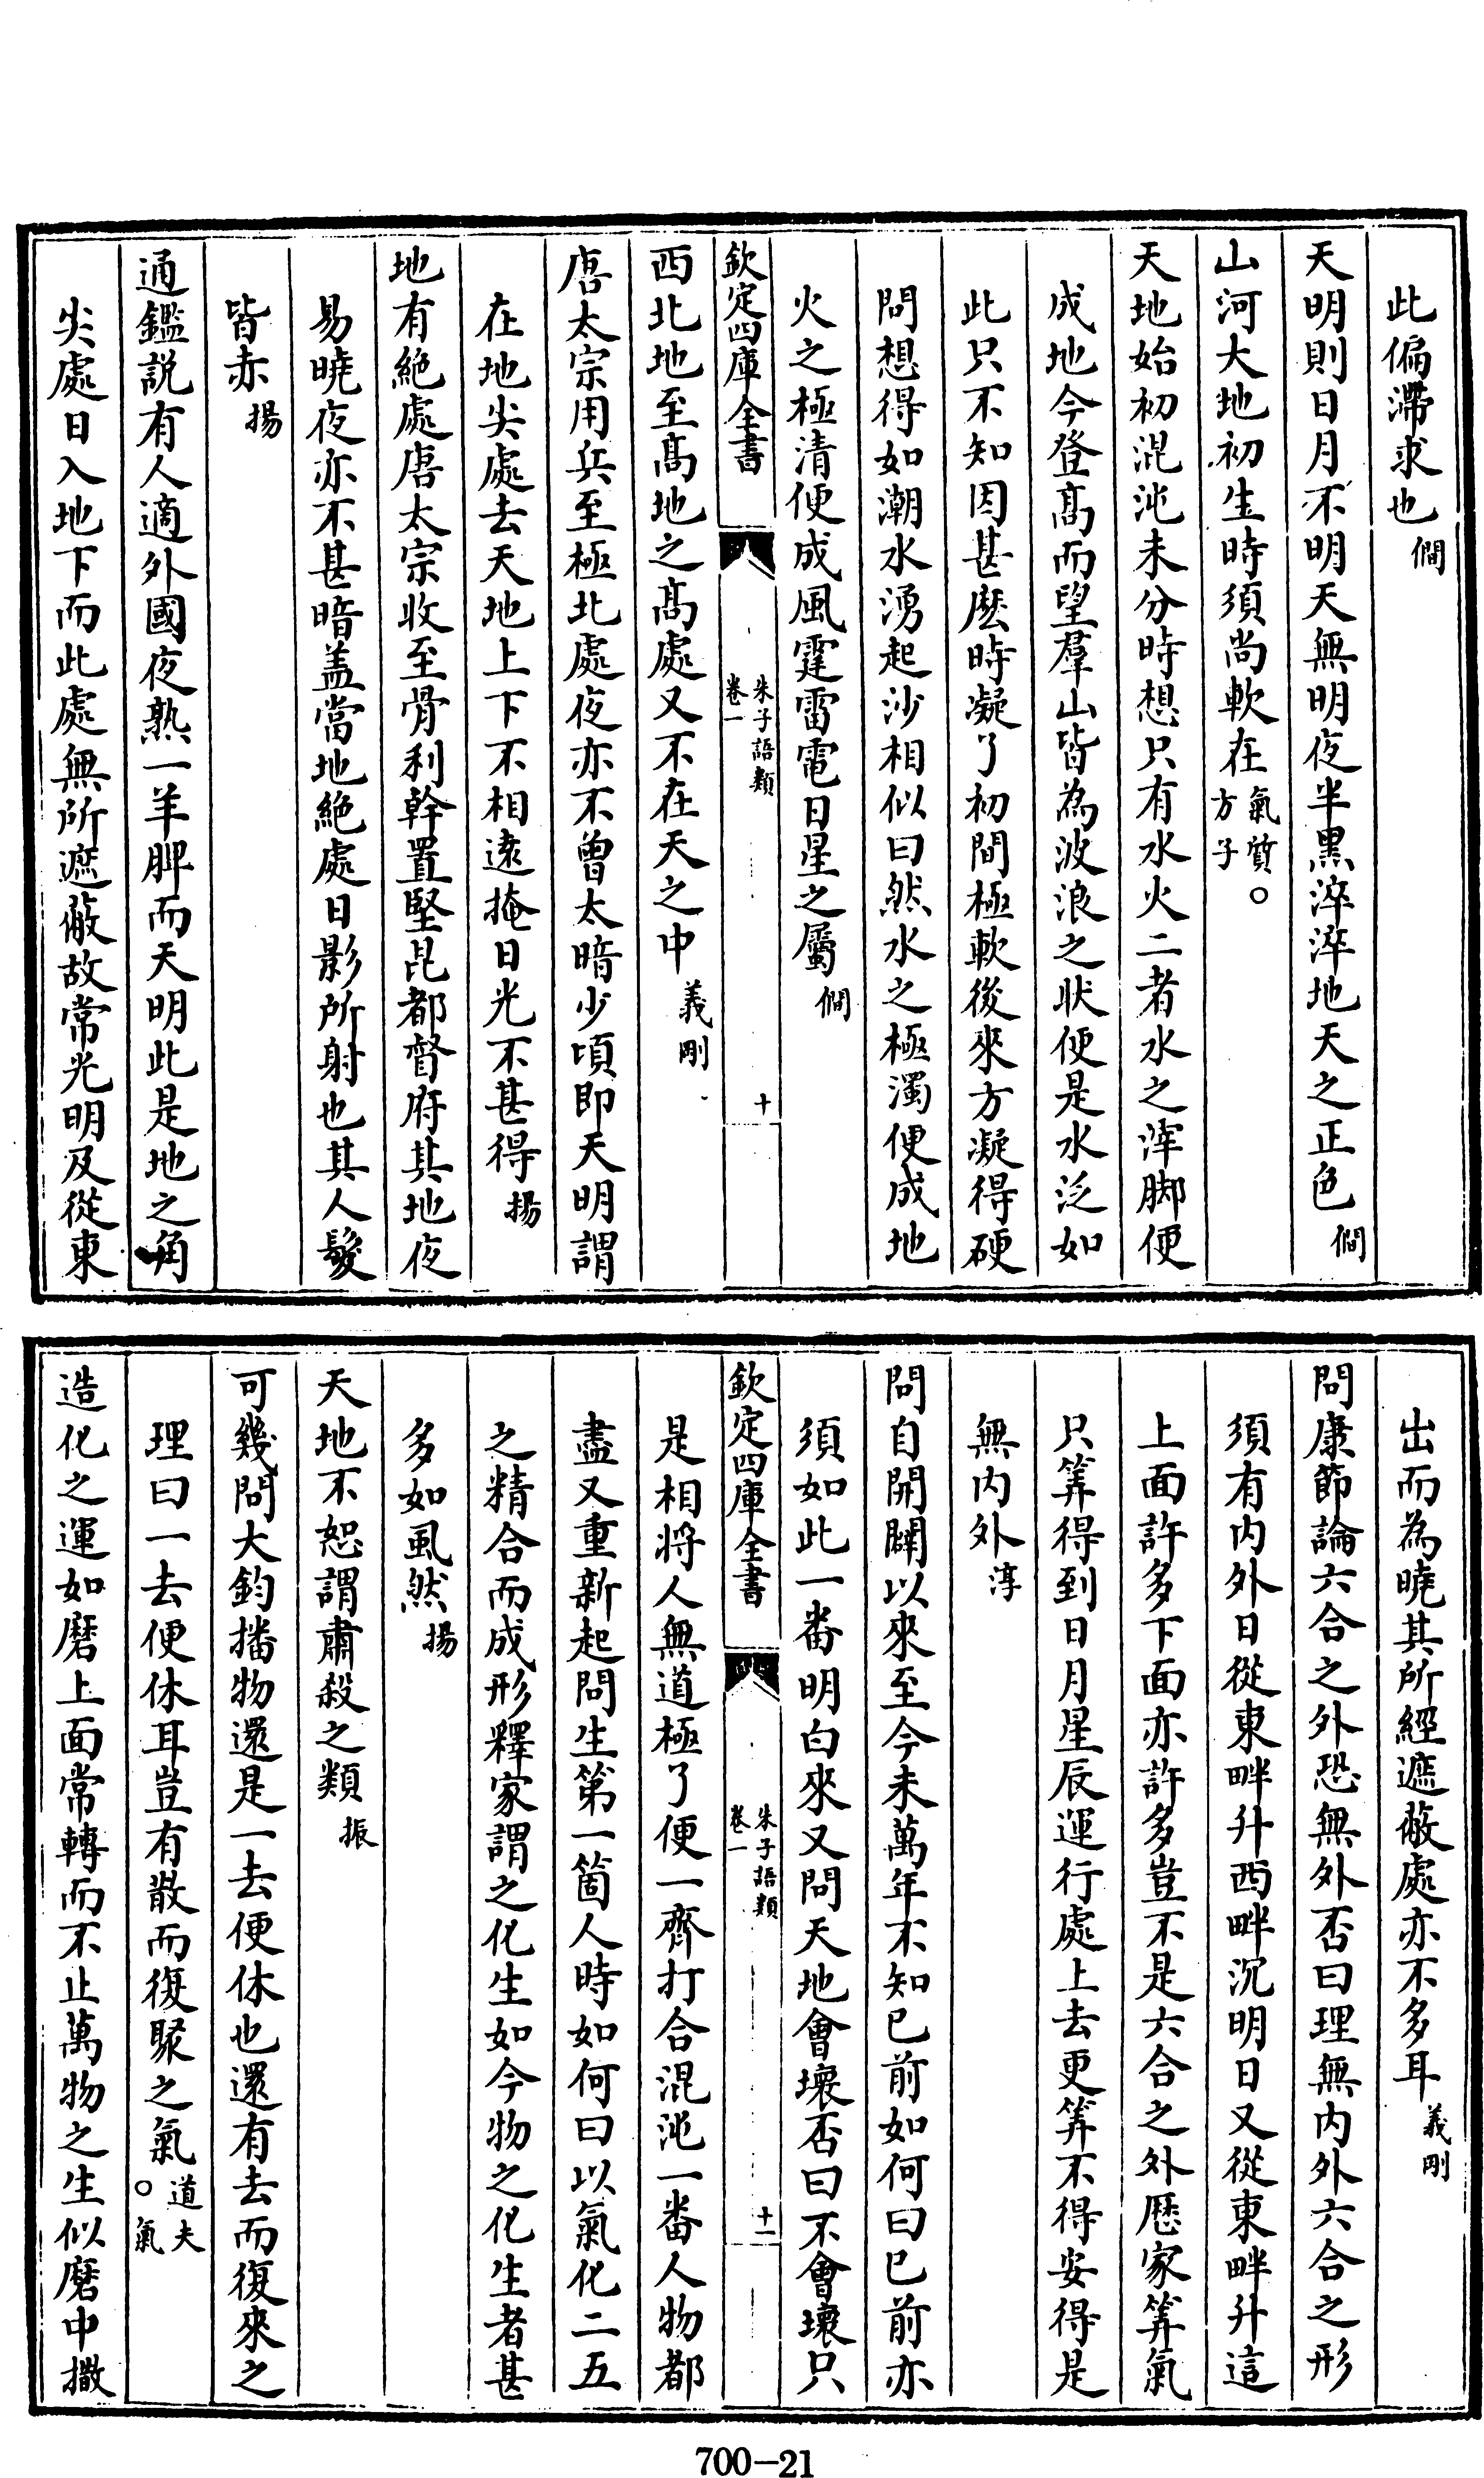 此偏滯求也 僩
天明則日月不明天無明夜半黒淬淬地天之正色 僩
山河大地初生時須尚軟在 氣質○方子
天地始初混沌未分時想只有水火二者水之滓脚便
成地今登髙而望羣山皆為波浪之狀便是水泛如
此只不知因甚麽時凝了初間極軟後來方凝得硬
問想得如潮水湧起沙相似曰然水之極濁便成地
火之極清便成風霆雷電日星之屬 僩
欽定四庫全書 朱子語類 卷一 十
西北地至髙地之髙處又不在天之中 義剛
唐太宗用兵至極北處夜亦不曾太暗少頃即天明謂
在地尖處去天地上下不相逺掩日光不甚得 揚
地有絶處唐太宗收至骨利幹置堅昆都督府其地夜
易曉夜亦不甚暗盖當地絶處日影所射也其人髮
皆赤 揚
通鑑説有人適外國夜熟一羊脾而天明此是地之角
尖處日入地下而此處無所遮蔽故常光明及從東
出而為曉其所經遮蔽處亦不多耳 義剛
問康節論六合之外恐無外否曰理無内外六合之形
須有内外日從東畔升西畔沉明日又從東畔升這
上面許多下面亦許多豈不是六合之外厯家筭氣
只筭得到日月星辰運行處上去更筭不得安得是
無内外 淳
問自開闢以來至今未萬年不知已前如何曰已前亦
須如此一番明白來又問天地會壊否曰不會壊只
欽定四庫全書 朱子語類 卷一 十一
是相將人無道極了便一齊打合混沌一番人物都
盡又重新起問生第一箇人時如何曰以氣化二五
之精合而成形釋家謂之化生如今物之化生者甚
多如虱然 揚
天地不恕謂肅殺之類 振
可幾問大鈞播物還是一去便休也還有去而復來之
理曰一去便休耳豈有散而復聚之氣 道夫○氣
造化之運如磨上面常轉而不止萬物之生似磨中撒
700-21